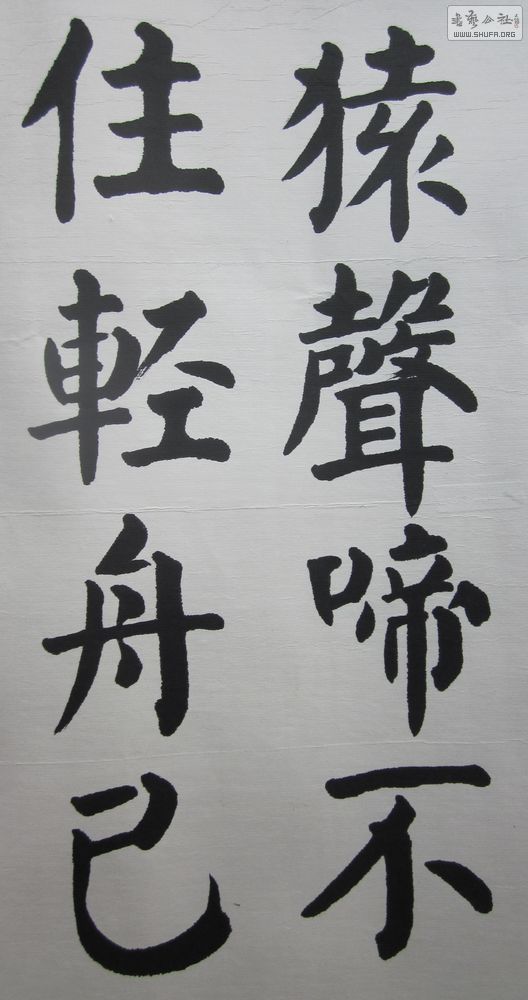 猿聲啼不
住輕舟已
书艺公社
WWW.SHUFA.ORG